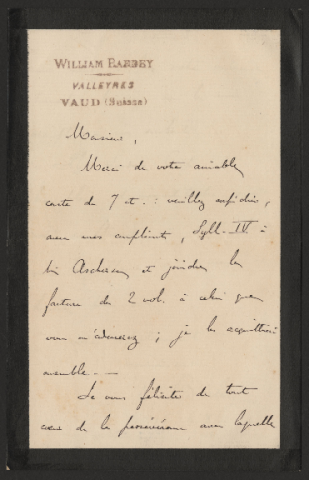 WILLIAM BARBEY
VALLEYRES
VAUD (Suisse)
Monsieur,
Merci de votre aimable
carte de 7 ct. : veuillez expédier,
avec mes compliments, Syll. IV à
Mr Ascherson et joindre la
facture du 2 vol. à celui que
vous m'adresserez ; je les acquitterai
ensemble. —
Je vous félicite de tout
cœur de la persévérance avec laquelle